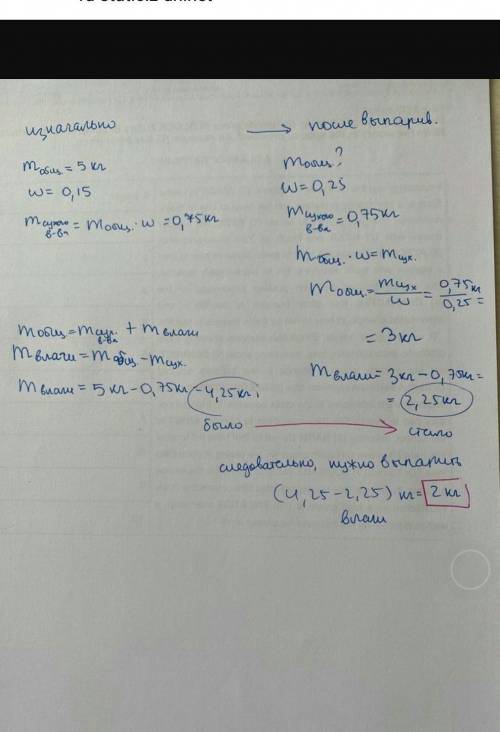 изначально → после выпарив.
mобщ. = 5 кг
w = 0,15
mсухого в-ва = mобщ. · w = 0,75 кг
mобщ?
w = 0,25
mсухого в-ва = 0,75 кг
mобщ. · w = mсух.
mобщ. = mсух / w = 0,75 кг / 0,25 =
= 3 кг
mобщ = mсух. в-ва + mвлаги
mвлаги = mобщ – mсух.
mвлаги = 5 кг – 0,75 кг = 4,25 кг
mвлаги = 3 кг – 0,75 кг =
= 2,25 кг
было → стало
следовательно, нужно выпарить
(4,25 – 2,25) кг = 2 кг
влаги